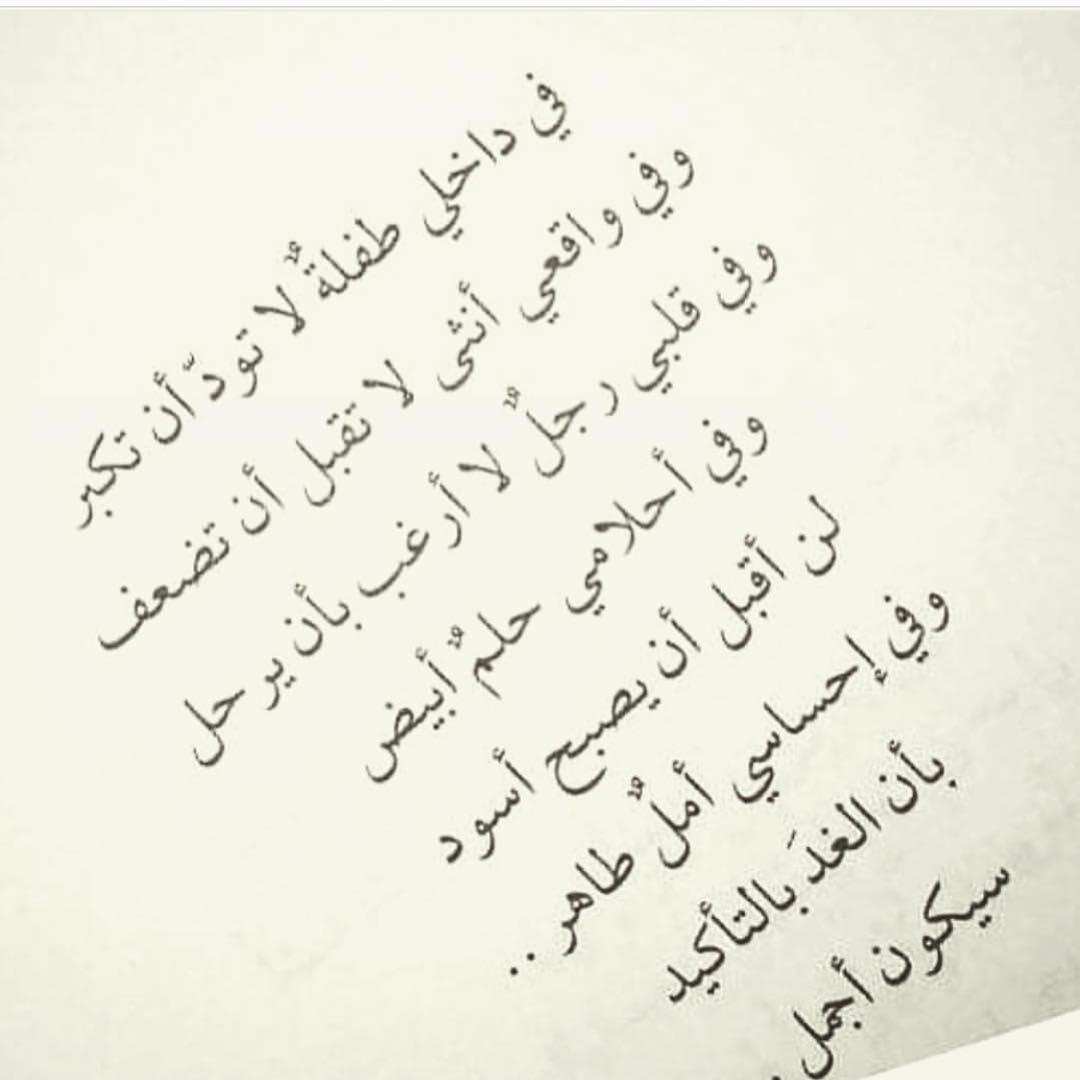 في داخلي طفلةٌ لا تودّ أن تكبر
وفي واقعي أنثى لا تقبل أن تضعف
وفي قلبي رجلٌ لا أرغب بأن يرحل
وفي أحلامي حلمٌ أبيض
لن أقبل أن يصبح أسود
وفي إحساسي أملٌ طاهر ..
بأن الغدَ بالتأكيد
سيكون أجمل .